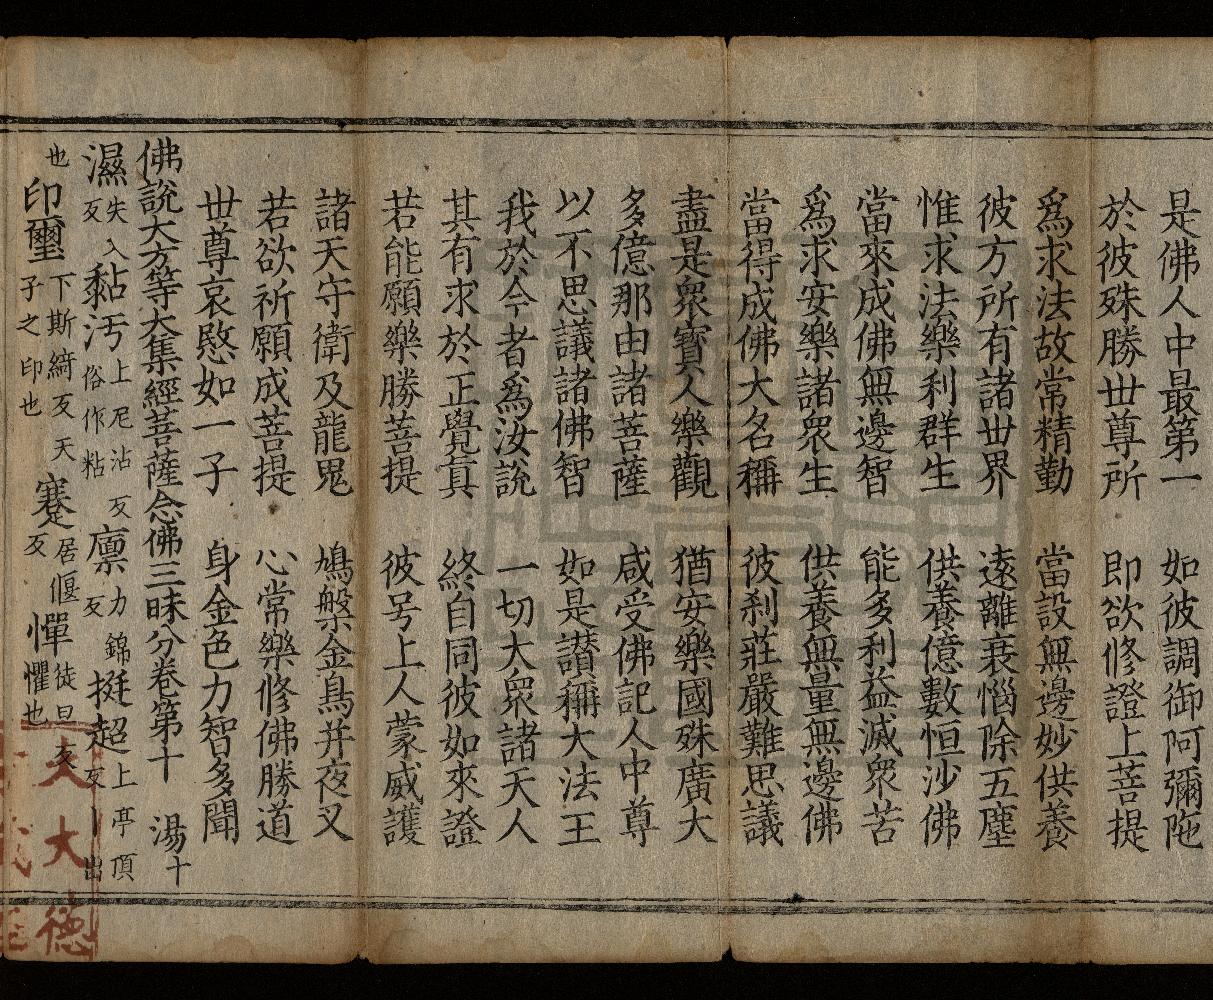 是佛人中最第一　如彼調御阿彌陁
於彼殊勝丗尊所　即欲修證上菩提
爲求法故常精勤　當設無邊妙供養
彼方所有諸丗界　遠離衰惱除五塵
惟求法樂利群生　供養億數恒沙佛
當來成佛無邊智　能多利益滅衆苦
爲求安樂諸衆生　供養無量無邊佛
當得成佛大名稱　彼刹莊嚴難思議
盡是衆寶人樂觀　猶安樂國殊廣大
多億那由諸菩薩　咸受佛記人中尊
以不思議諸佛智　如是讃稱大法王
我於今者爲汝說　一切大衆諸天人
其有求於正覺真　終自同彼如來證
若能願樂勝菩提　彼号上人蒙威護
諸天守衛及龍鬼　鳩槃金鳥并夜叉
若欲祈願成菩提　心常樂修佛勝道
丗尊哀愍如一子　身金色力智多聞
佛說大方等大集經菩薩念佛三昧分卷第十　湯十
濕失入反黏汚上尼沾反俗作粘廪力錦反挺超上亭頂反丨出
也印璽下斯綺反天子之印也蹇居偃反憚徒旦反懼也
大大德